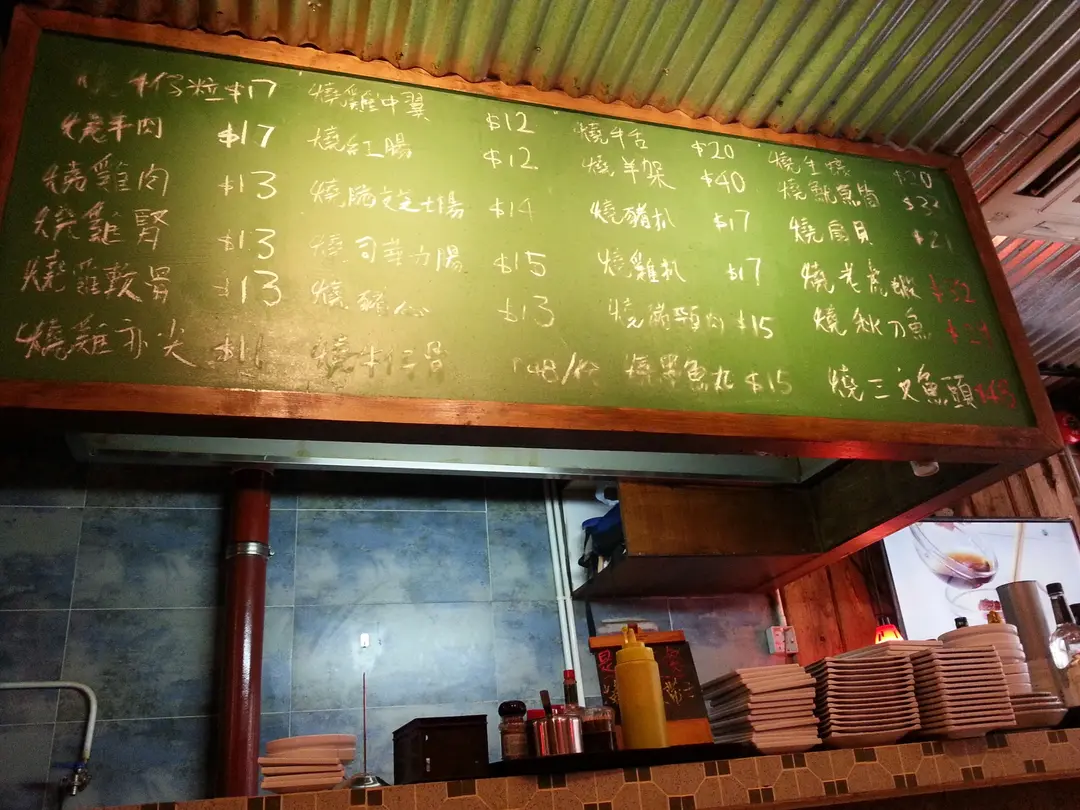 牛仔粒 $17
燒牛肉 $17
燒雞肉 $13
燒雞腎 $13
燒雞軟骨 $13
燒雞亦尖 $11
燒雞中翼 $12
燒紅腸 $12
燒腸芝士腸 $14
燒司華力腸 $15
燒豬心 $13
燒牛仔骨 48/份
燒牛舌 $20
燒羊架 $40
燒豬扒 $17
燒雞扒 $17
燒豬頸肉 $15
燒墨魚丸 $15
燒生蠔 $20
燒魷魚筒
燒扇貝 $21
燒老虎蝦 $32
燒秋刀魚
燒三文魚頭 $43